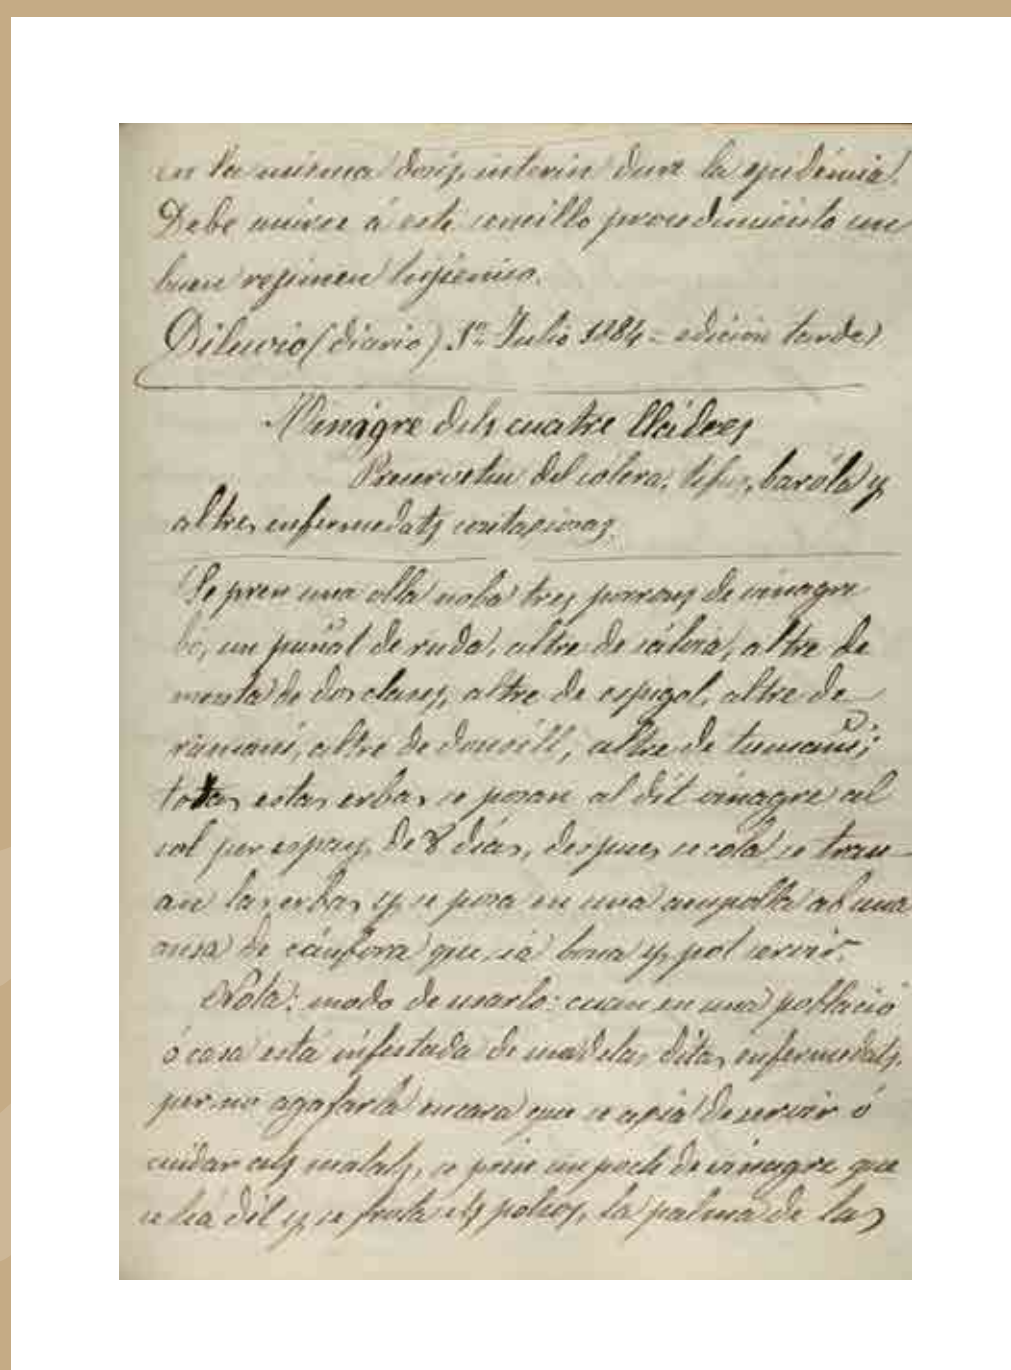 en la misma dosis, interin dure la epidémia.
Debe unirse á este sencillo procedimiento un
buen rejimen higienico.
Diluvio (diario) 1º Julio 1884 = edición tarde)
Vinagre dels cuatre lladres
Preservatiu del colera, tifus, baróla y
altres enfermedats contagiosas.
Se pren una olla noba tres porrons de vinagre
bo, un puñat de ruda, altre de sálvia, altre de
menta de dos clases, altre de espigol, altre de
rumaní, altre de donsell, altre de tumaní;
totas estas erbas se posan al dit vinagre al
sol per espay de 8 dias, despues se cola se trau-
an las erbas y se posa en una ampolla ab una
onsa de cánfora que sia bona y pot servir.
Nota: modo de usarlo: cuan en una població
ó casa está infestada de una de las ditas enfermedats,
per no agafarla encara que se apia de servir ó
cuidar als malalts, se pren un poch de vinagre que
se ha dit y se frota els polsos, la palma de las